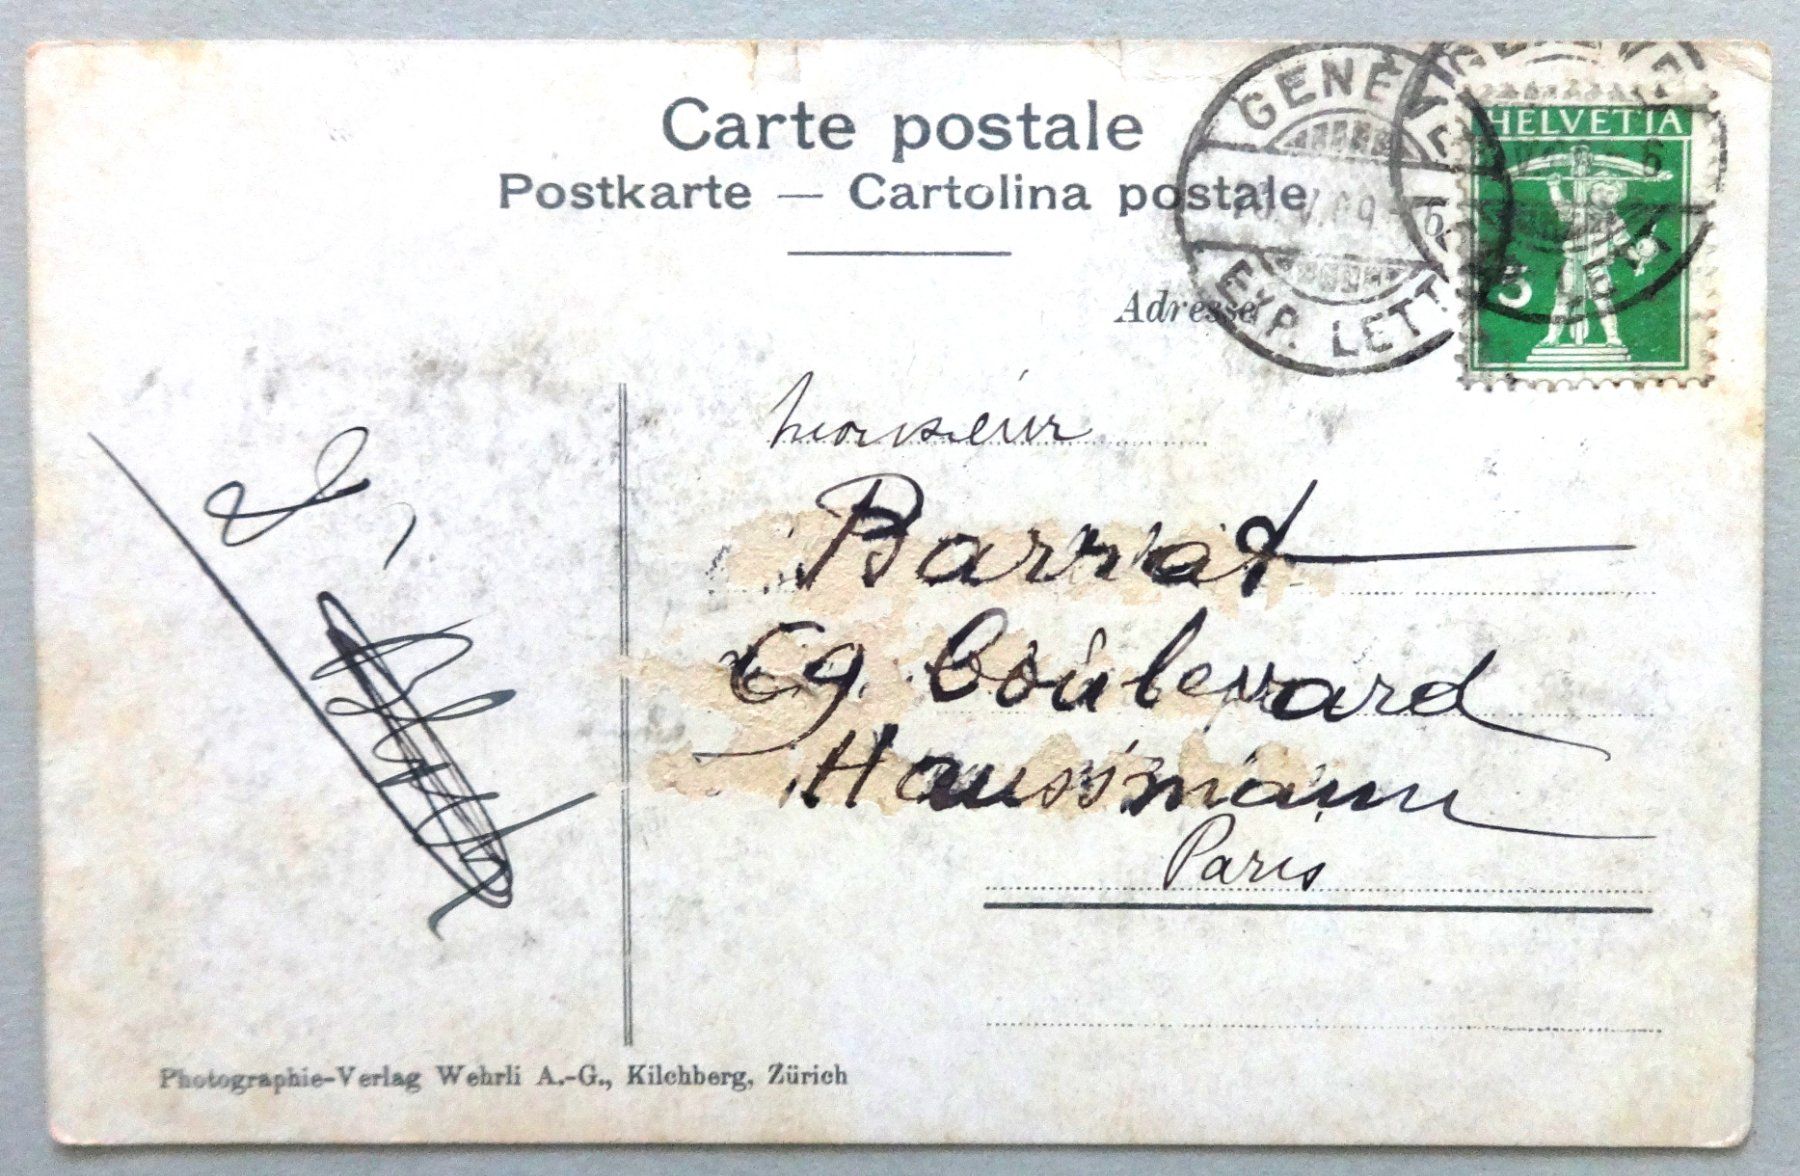 Carte postale
Postkarte — Cartolina postale
GENÈVE
V.09-6
EXP. LETT
HELVETIA
5
Adresse
Monsieur
Barrat
69 boulevard
Haussmann
Paris
Photographie-Verlag Wehrli A.-G., Kilchberg, Zürich